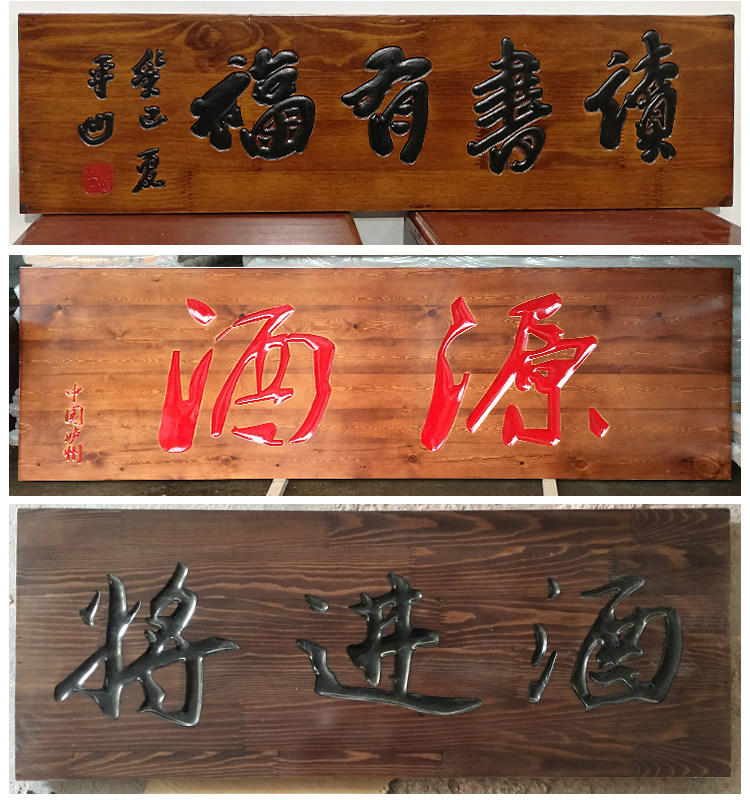 讀書有福
癸巳夏
平凹
酒源
中国泸州
将进酒